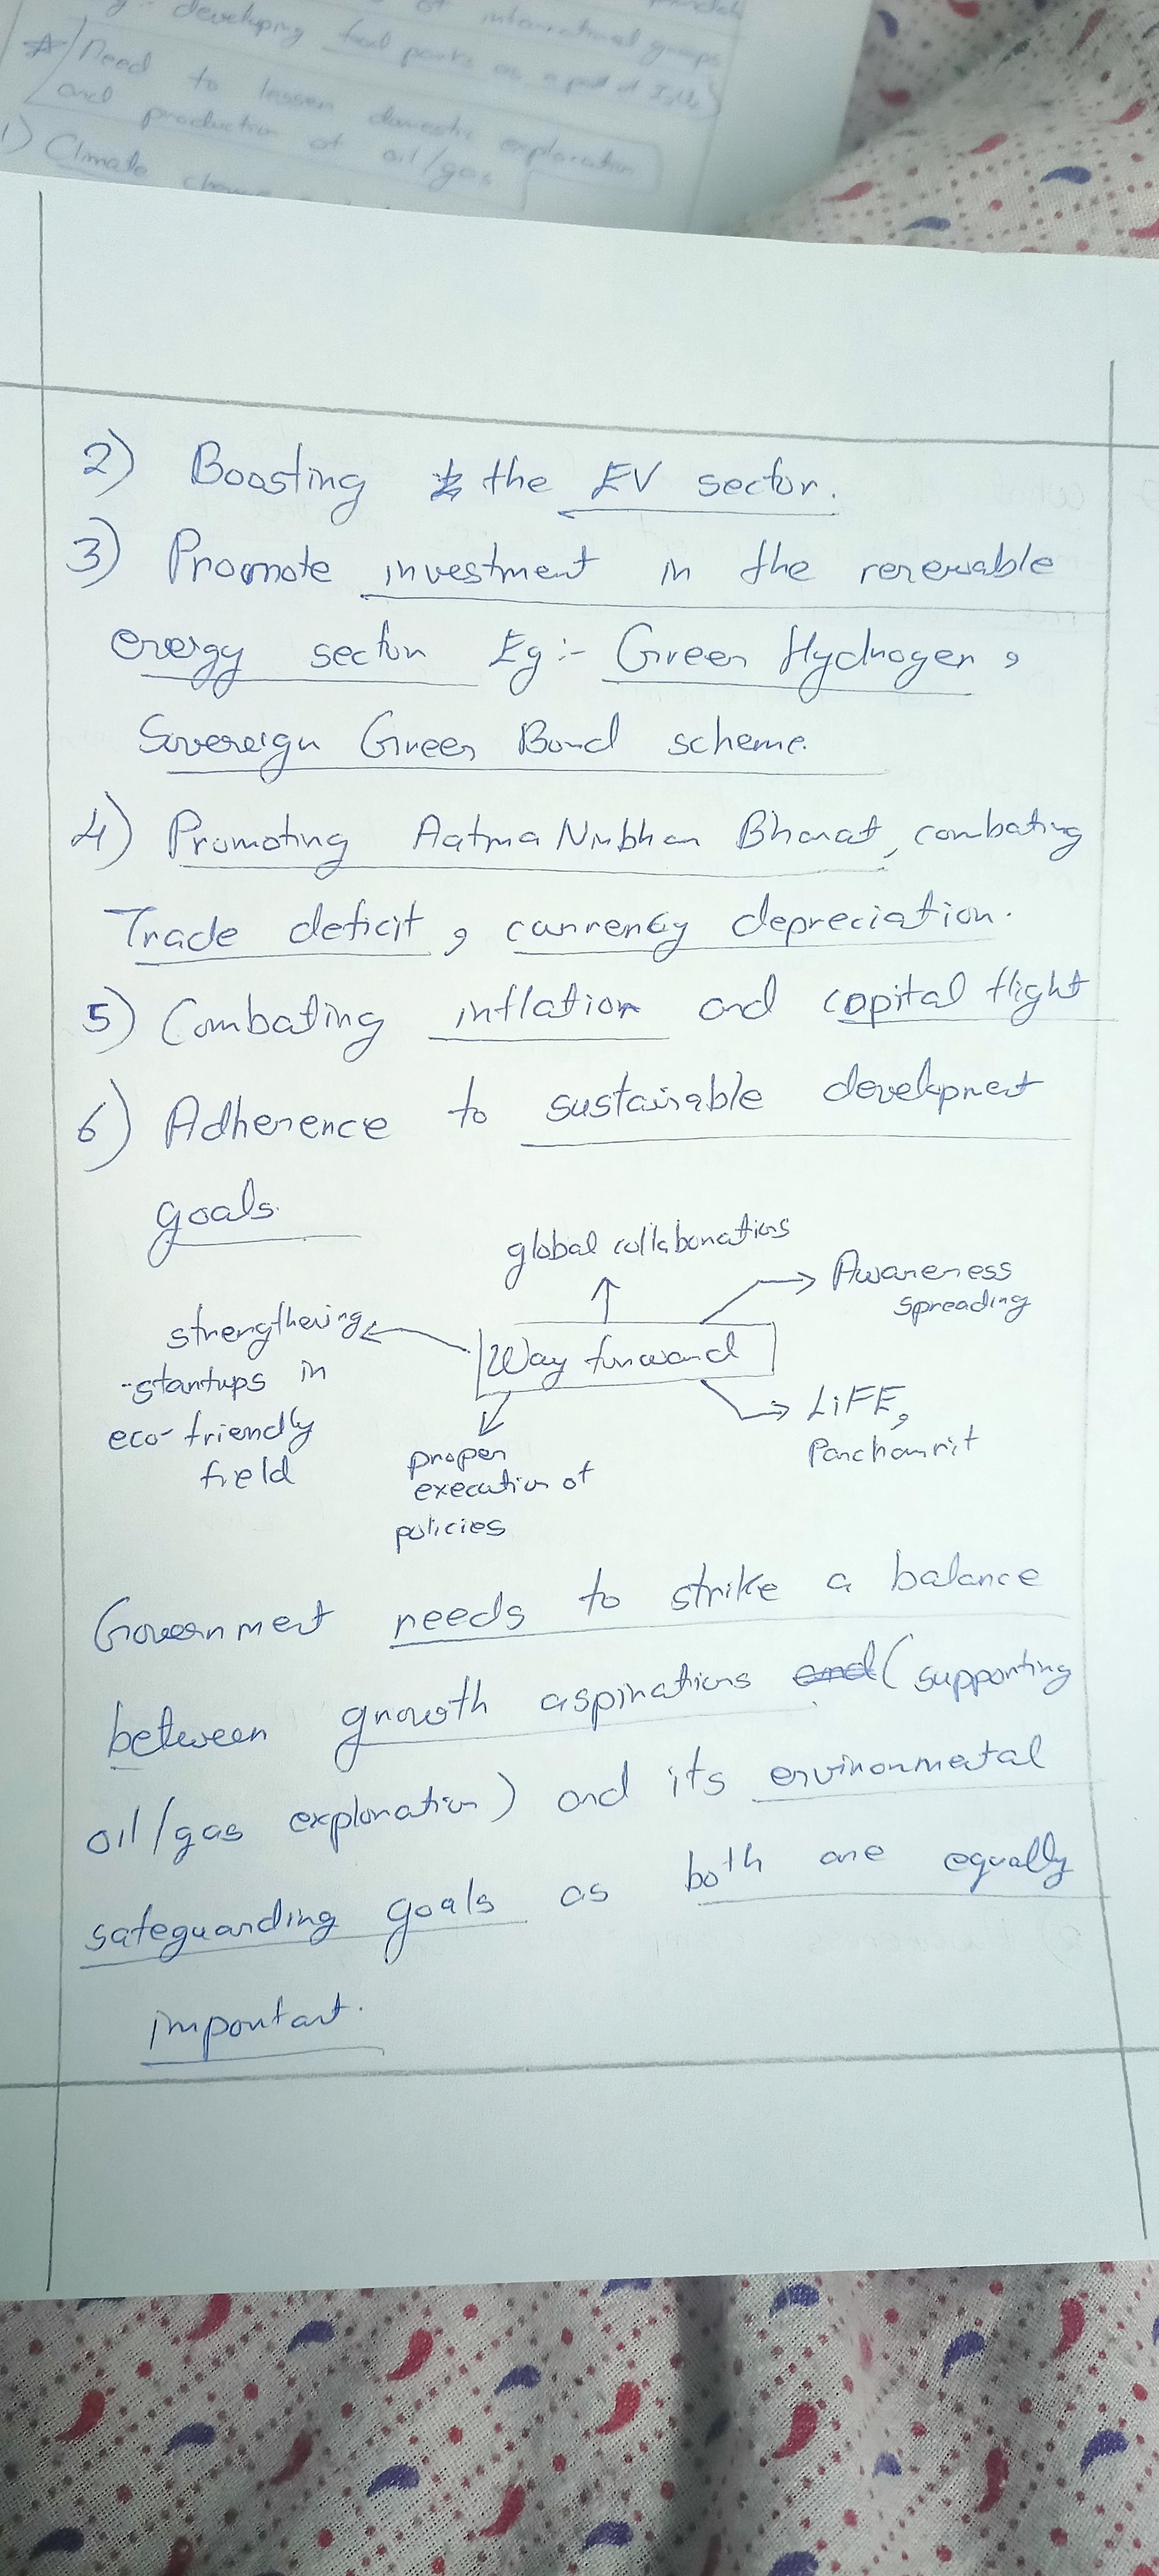 developing food parks as a part of
Need to lessen domestic exploration
and production of oil/gas
1) Climate
2) Boosting the EV sector.
3) Promote investment in the renewable
energy sector Eg:- Green Hydrogen,
Sovereign Green Bond scheme.
4) Promoting Aatma Nirbhar Bharat, combating
Trade deficit, currency depreciation.
5) Combating inflation and capital flight
6) Adherence to sustainable development
goals.
global collaborations
Awareness
spreading
strengthening
-startups in
eco-friendly
field
Way forward
LiFE,
Panchamrit
proper
execution of
policies
Government needs to strike a balance
between growth aspirations and (supporting
oil/gas exploration) and its environmental
safeguarding goals as both are equally
important.